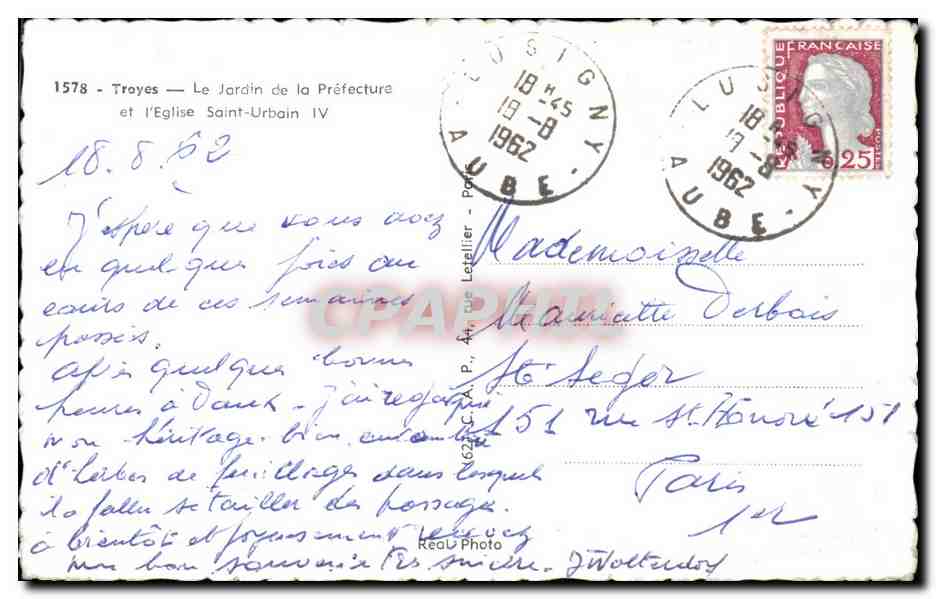 1578 - Troyes — Le Jardin de la Préfecture
et l'Eglise Saint-Urbain IV
18.8.62
J'espère que vous avez
eu quelques fois au
cours de ces semaines
passées.
après quelques bonnes
heures à j'ai regagné
mon héritage bien
d'herbes de feuillages dans lesquels
il a fallu se tailler des passages.
à bientôt et recevez
mon bon souvenir très sincère.
C.A.P., 44, rue Letellier - Paris
Réal-Photo
CPAPHIL
LUSIGNY
18 H 45
18 -8
1962
AUBE
LUSIGNY
18 H 45
18 -8
1962
AUBE
REPUBLIQUE FRANCAISE
POSTES
0,25
Mademoiselle
Mauricette Derbois
Sté Seger
151 rue St Honoré 151
Paris
1er